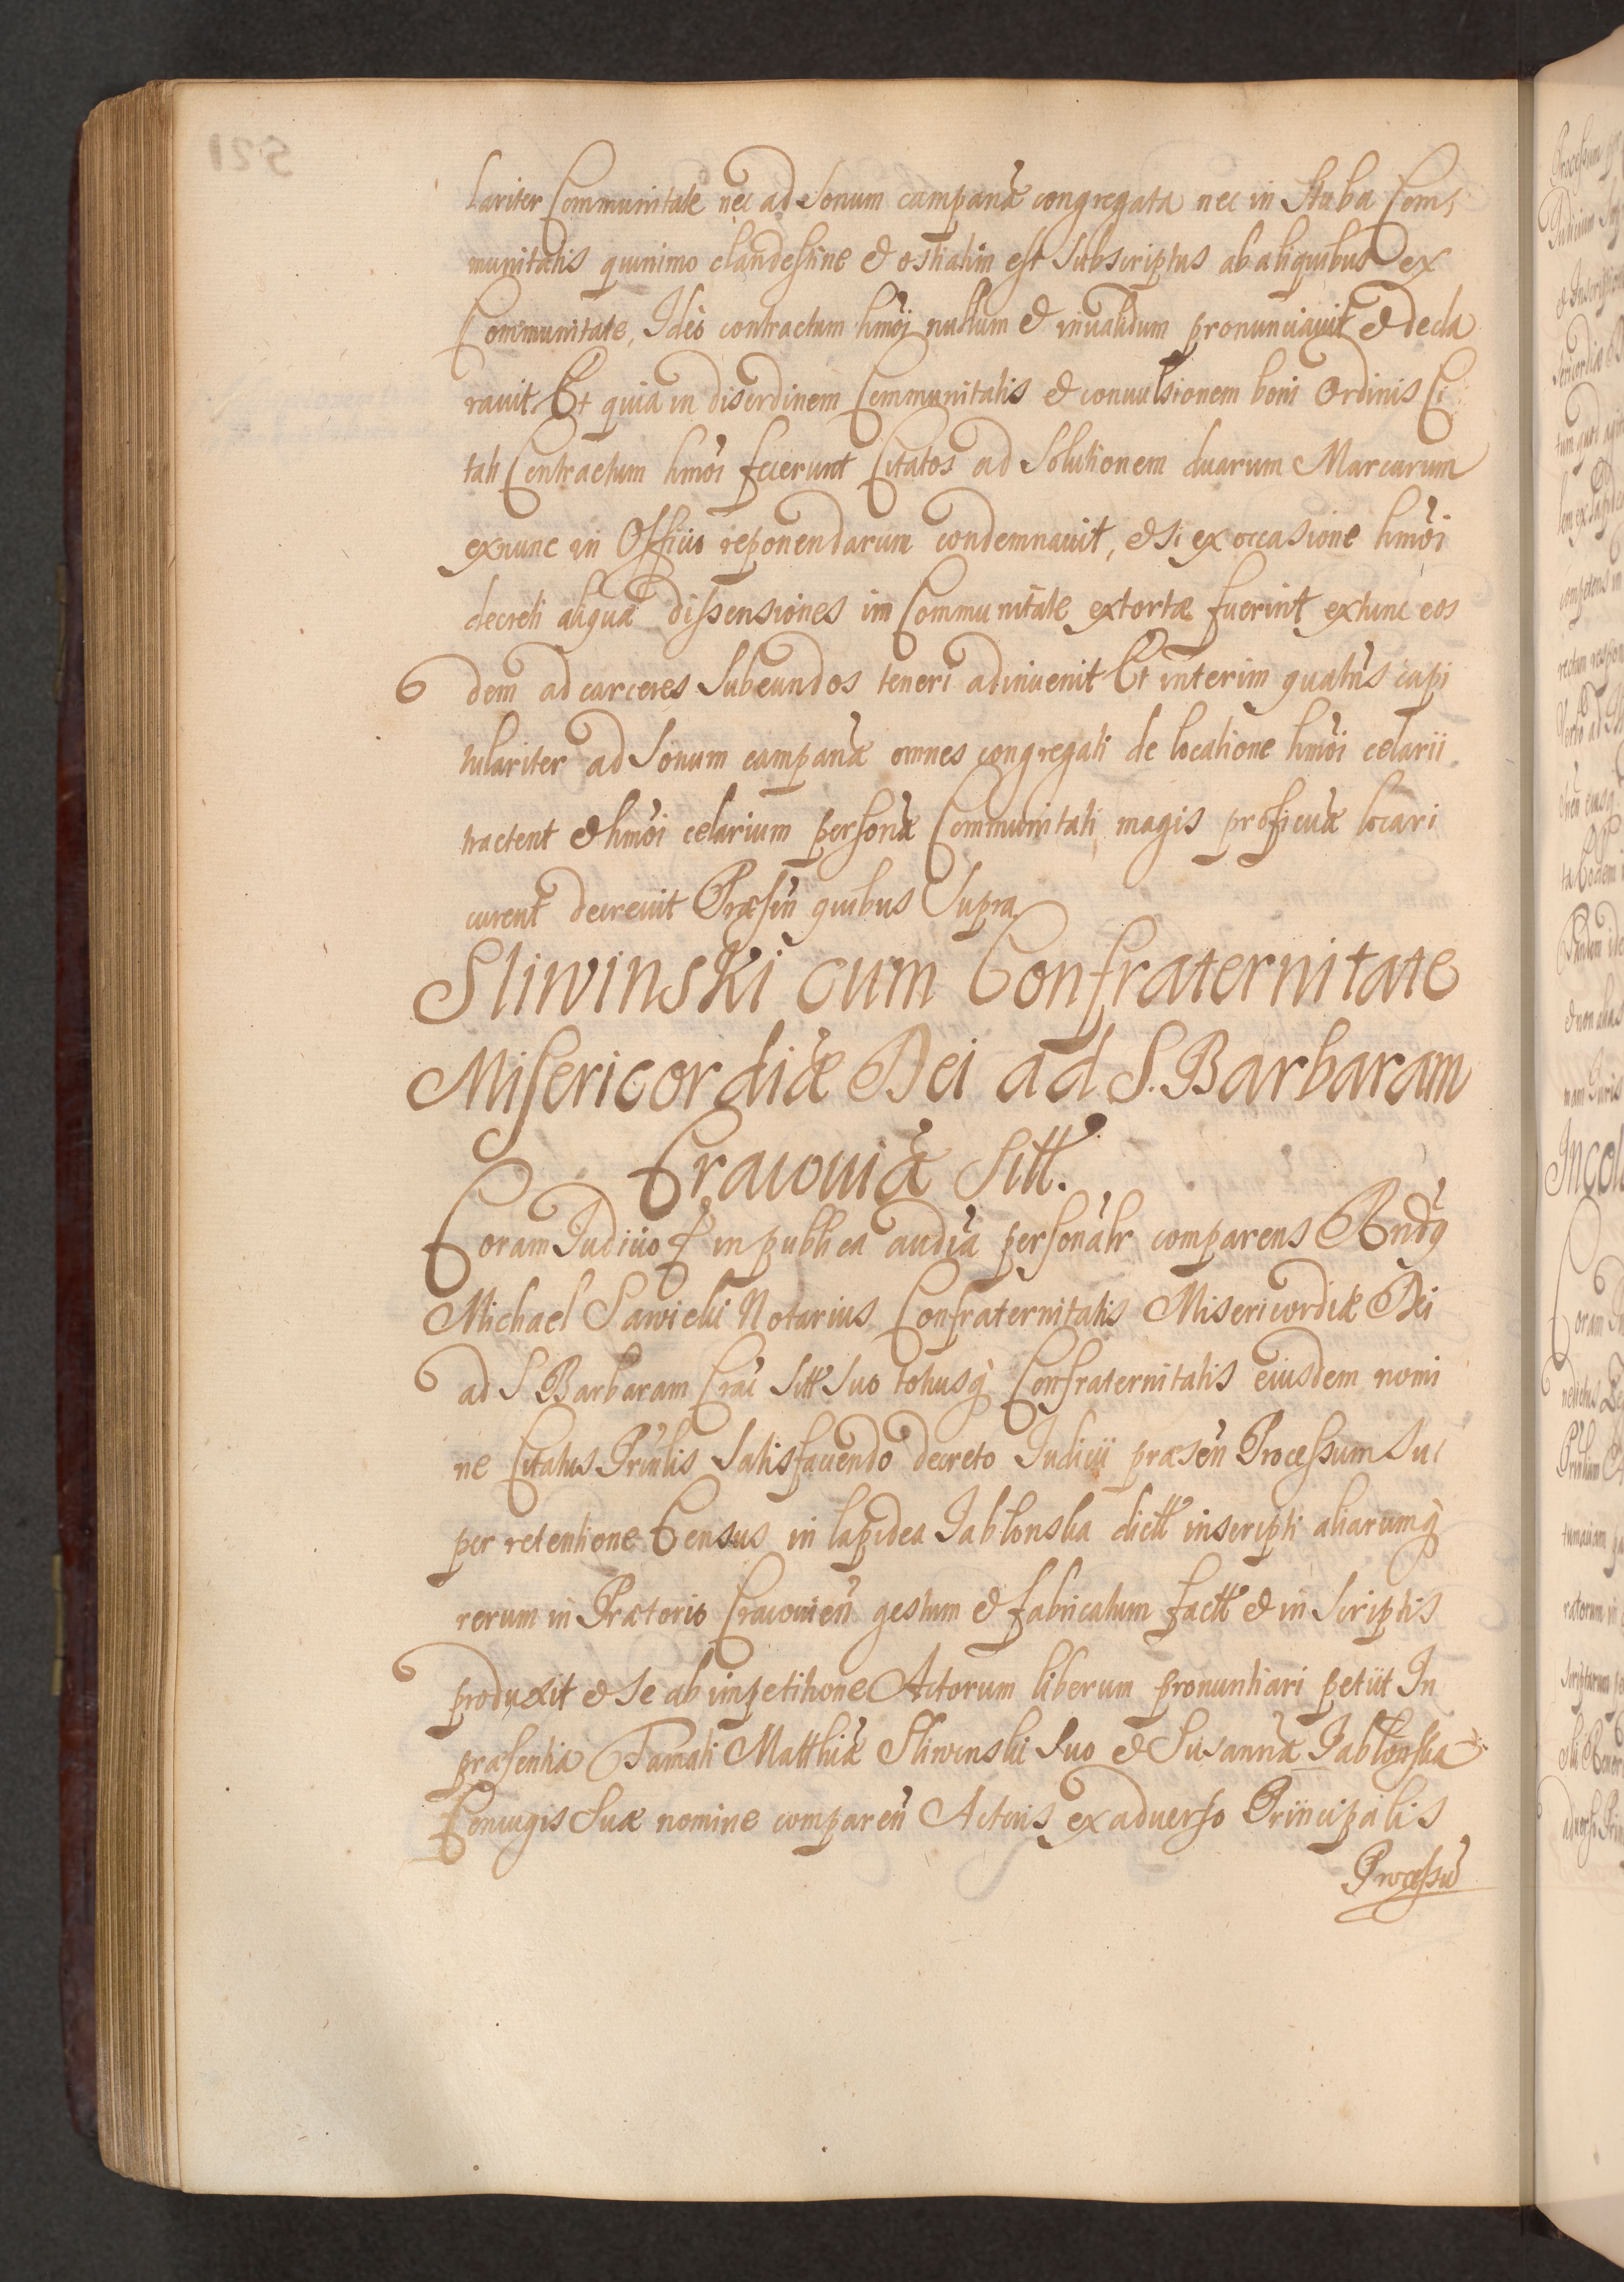 lariter Communitate nec ad sonum campanæ congregata nec in Stuba Com,
munitatis quinimo clandestine & ostiatim est subscriptus ab aliquibus ex
Communitate, Ideò contractum hmôi nullum & inualidum pronunciauit & decla
rauit Et quia in disordinem Communitatis & conuulsionem boni Ordinis Ci
tati Contractum hmôi fecerunt Citatos ad Solutionem duarum Marcarum
exnunc in Officio reponendarum condemnauit, & si ex occasione hmôi
decreti aliquæ dissensiones im Communitate extortæ fuerint extunc eos
dem ad carceres subeundos teneri adinuenit Et interim quatûs capi
tulariter ad Sonum campanæ omnes congregati de locatione hmôi celarii
tractent & hmôi celarium personæ Communitati magis proficuæ locari
curent decreuit Præsen̄ quibus Supra
Sliwinski cum Confraternitate
Misericordiæ Dei ad S. Barbaram
Cracouiæ Sitt.
Coram Iudicio & in publica audiâ personâlr comparens Rndg
Michael Sawicki Notarius Confraternitatis Misericordiæ Dei
ad S Barbaram Crac̄ Sitt Suo totiusq̀ Confraternitatis eiusdem nomi
ne Citatus Prinlis Satisfaciendo decreto Iudicii præsen̄ Processum Su
per retentione Census in lapidea Iablonska dictt inscripti aliarumq̀
rerum in Prætorio Cracouien̄ gestum & fabricatum factt & in Scriptis
produxit & se ab impetitione Actorum liberum pronuntiari petiit In
præsentia Famati Matthiæ Sliwinski suo & Susannæ Iablonska
Coniugis Suæ nomine comparen̄ Actoris ex aduerso Principalis
Processū